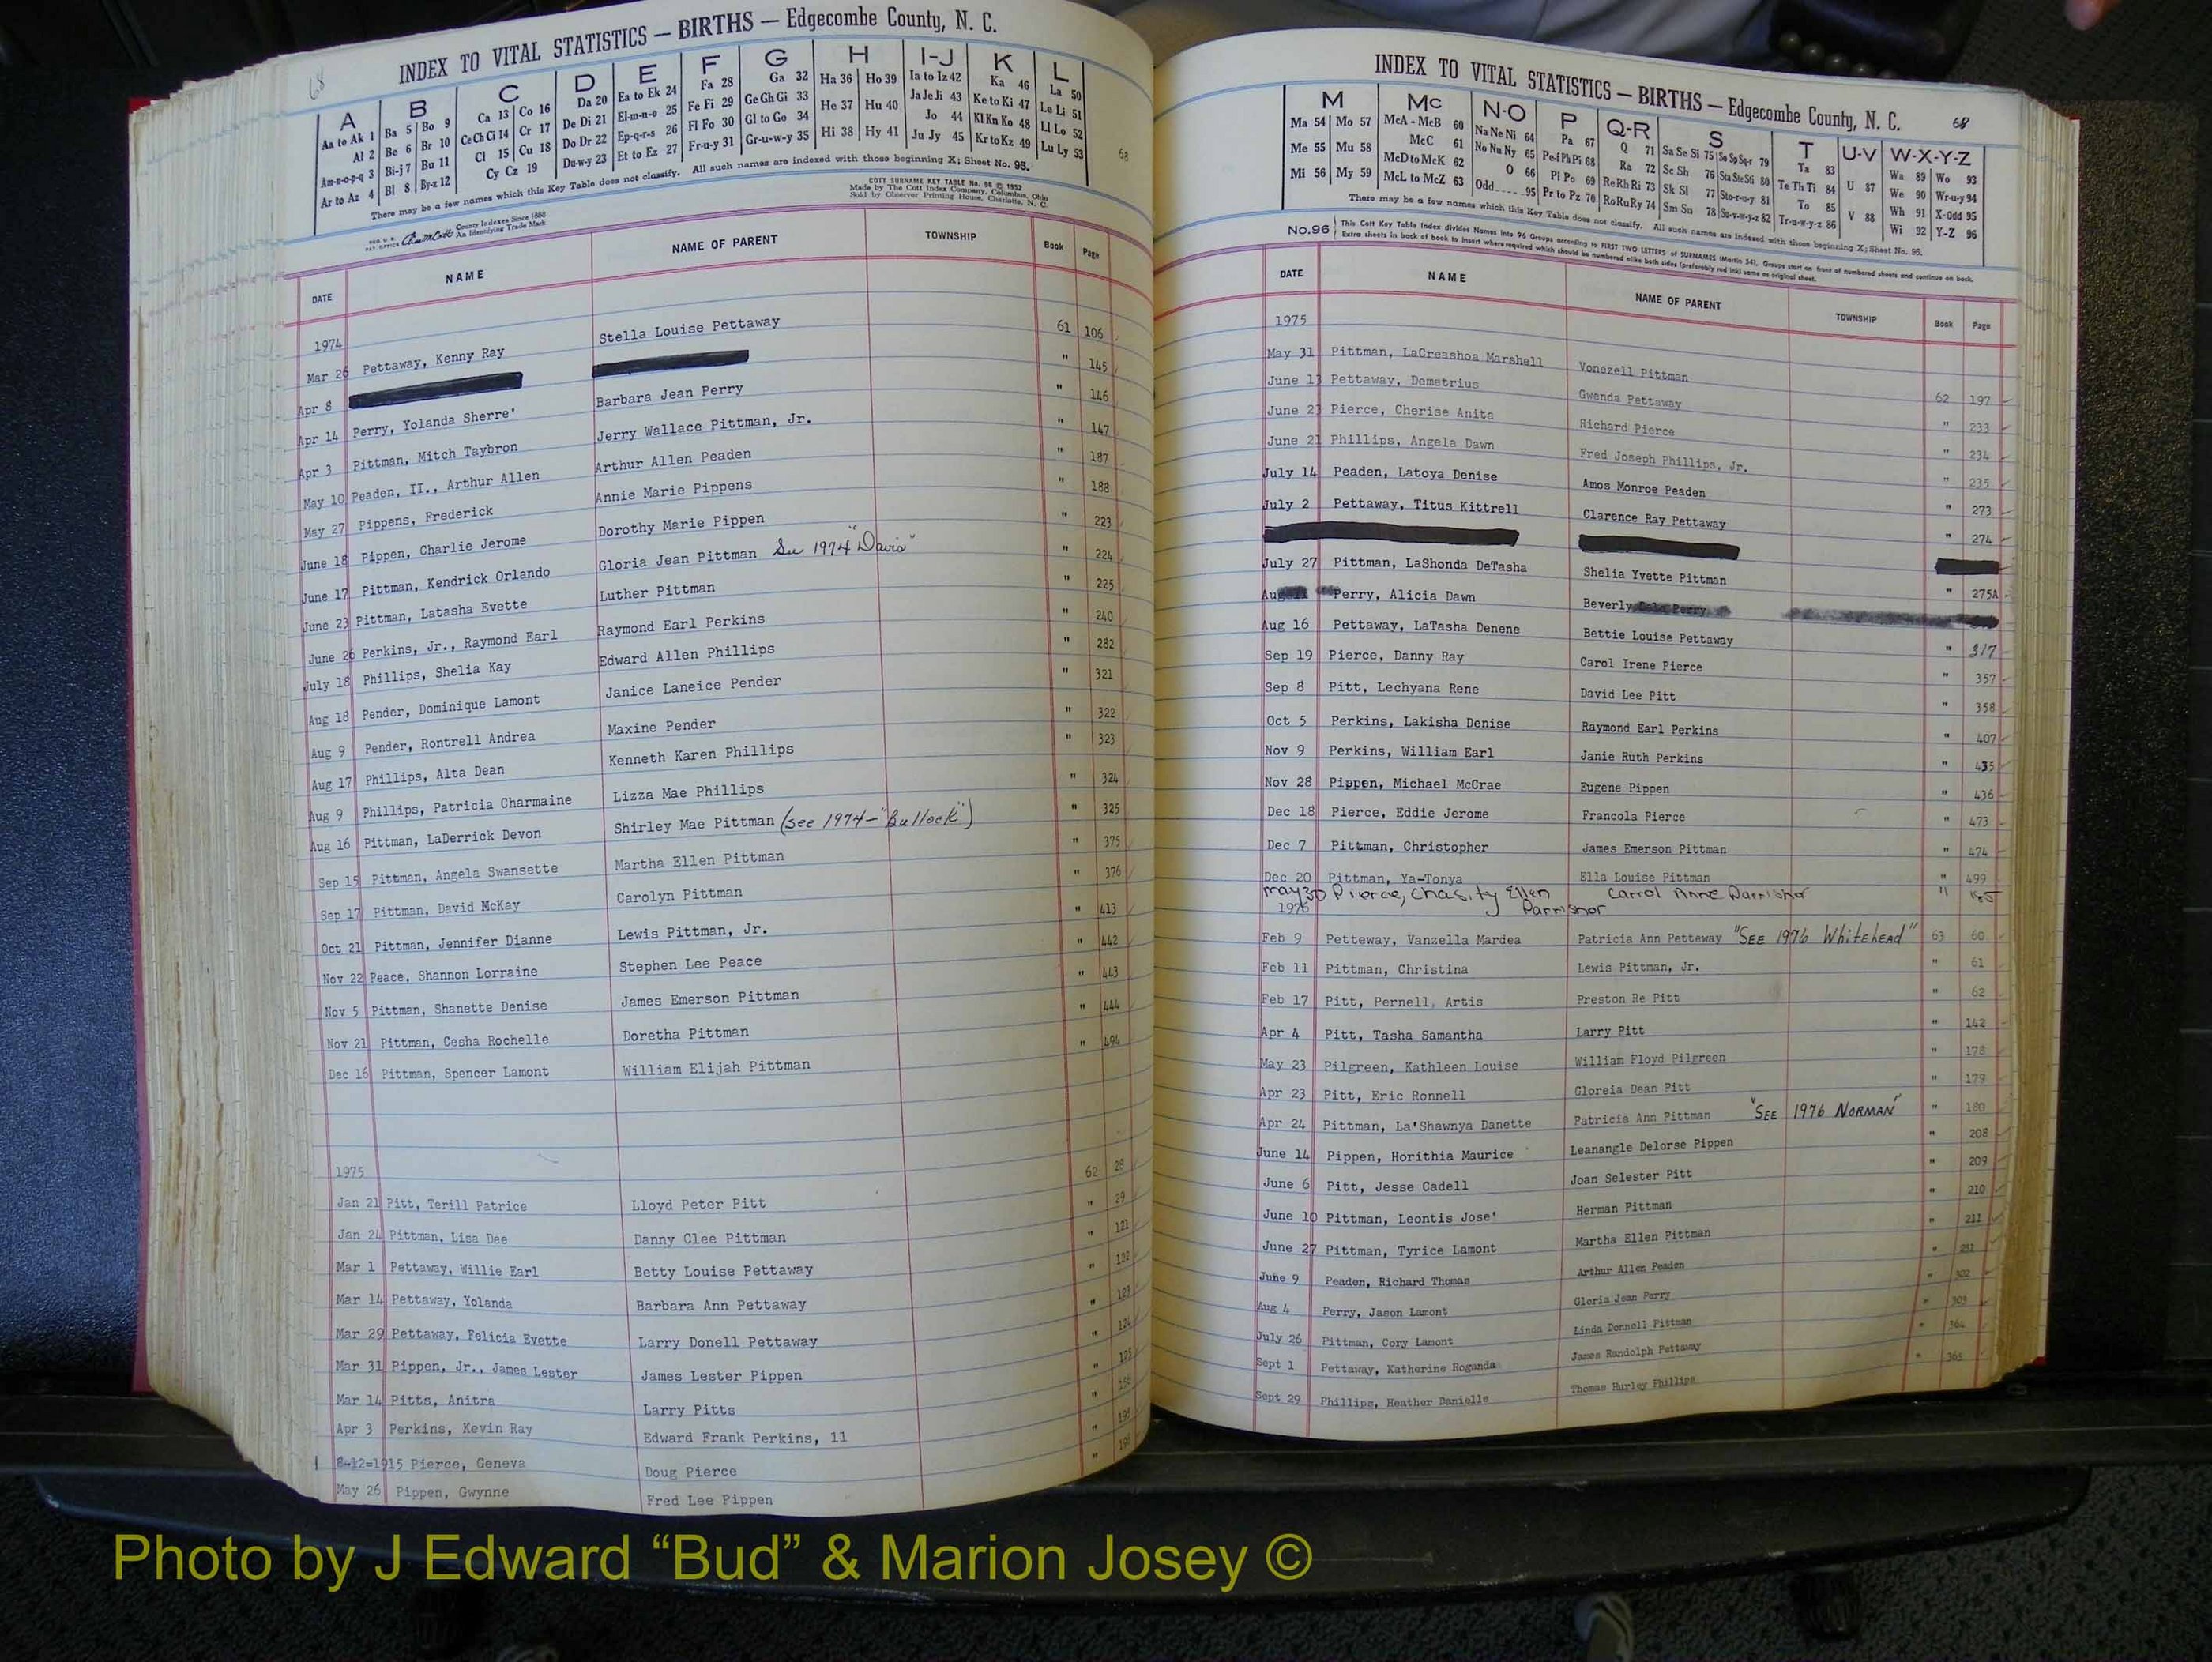 68
INDEX TO VITAL STATISTICS — BIRTHS — Edgecombe County, N. C.
A B C D E F G H I-J K L
Aa to Ak 1 Ba 5 Bo 9 Ca 13 Co 16 Da 20 Ea to Ek 24 Fa 28 Ga 32 Ha 36 Ho 39 Ia to Iz 42 Ka 46 La 50
Al 2 Be 6 Br 10 Ce Ch Ci 14 Cr 17 De Di 21 El-m-n-o 25 Fe Fi 29 Ge Gh Gi 33 He 37 Hu 40 Ja Je Ji 43 Ke to Ki 47 Le Li 51
Am-n-o-p-q 3 Bi-j 7 Bu 11 Cl 15 Cu 18 Do Dr 22 Ep-q-r-s 26 Fl Fo 30 Gl to Go 34 Hi 38 Hy 41 Jo 44 Kl Kn Ko 48 Ll Lo 52
Ar to Az 4 Bl 8 By-z 12 Cy Cz 19 Du-w-y 23 Et to Ez 27 Fr-u-y 31 Gr-u-w-y 35 Ju Jy 45 Kr to Kz 49 Lu Ly 53
68
There may be a few names which this Key Table does not classify. All such names are indexed with those beginning X; Sheet No. 95.
COTT SURNAME KEY TABLE No. 96 © 1952
Made by The Cott Index Company, Columbus, Ohio
Sold by Observer Printing House, Charlotte, N. C.
REG. U. S. PAT. OFFICE County Indexes Since 1888
An Identifying Trade Mark
DATE NAME NAME OF PARENT TOWNSHIP Book Page
1974
Mar 26 Pettaway, Kenny Ray Stella Louise Pettaway 61 106
Apr 8 " 145
Apr 14 Perry, Yolanda Sherre' Barbara Jean Perry " 146
Apr 3 Pittman, Mitch Taybron Jerry Wallace Pittman, Jr. " 147
May 10 Peaden, II., Arthur Allen Arthur Allen Peaden " 187
May 27 Pippens, Frederick Annie Marie Pippens " 188
June 18 Pippen, Charlie Jerome Dorothy Marie Pippen " 223
June 17 Pittman, Kendrick Orlando Gloria Jean Pittman See 1974 "Davis" " 224
June 23 Pittman, Latasha Evette Luther Pittman " 225
June 26 Perkins, Jr., Raymond Earl Raymond Earl Perkins " 240
July 18 Phillips, Shelia Kay Edward Allen Phillips " 282
Aug 18 Pender, Dominique Lamont Janice Laneice Pender " 321
Aug 9 Pender, Rontrell Andrea Maxine Pender " 322
Aug 17 Phillips, Alta Dean Kenneth Karen Phillips " 323
Aug 9 Phillips, Patricia Charmaine Lizza Mae Phillips " 324
Aug 16 Pittman, LaDerrick Devon Shirley Mae Pittman (see 1974-"Bullock") " 325
Sep 15 Pittman, Angela Swansette Martha Ellen Pittman " 375
Sep 17 Pittman, David McKay Carolyn Pittman " 376
Oct 21 Pittman, Jennifer Dianne Lewis Pittman, Jr. " 413
Nov 22 Peace, Shannon Lorraine Stephen Lee Peace " 442
Nov 5 Pittman, Shanette Denise James Emerson Pittman " 443
Nov 21 Pittman, Cesha Rochelle Doretha Pittman " 444
Dec 16 Pittman, Spencer Lamont William Elijah Pittman " 494
1975
Jan 21 Pitt, Terill Patrice Lloyd Peter Pitt 62 28
Jan 24 Pittman, Lisa Dee Danny Clee Pittman " 29
Mar 1 Pettaway, Willie Earl Betty Louise Pettaway " 121
Mar 14 Pettaway, Yolanda Barbara Ann Pettaway " 122
Mar 29 Pettaway, Felicia Evette Larry Donell Pettaway " 123
Mar 31 Pippen, Jr., James Lester James Lester Pippen " 124
Mar 14 Pitts, Anitra Larry Pitts " 125
Apr 3 Perkins, Kevin Ray Edward Frank Perkins, 11 " 156
8-12=1915 Pierce, Geneva Doug Pierce " 195
May 26 Pippen, Gwynne Fred Lee Pippen " 196
INDEX TO VITAL STATISTICS — BIRTHS — Edgecombe County, N. C. 68
M Mc N-O P Q-R S T U-V W-X-Y-Z
Ma 54 Mo 57 McA - McB 60 Na Ne Ni 64 Pa 67 Q 71 Sa Se Si 75 So Sp Sq-r 79 Ta 83 Wa 89 Wo 93
Me 55 Mu 58 McC 61 No Nu Ny 65 Pe-f Ph Pi 68 Ra 72 Sc Sh 76 Sta Ste Sti 80 Te Th Ti 84 U 87 We 90 Wr-u-y 94
Mi 56 My 59 McD to McK 62 O 66 Pl Po 69 Re Rh Ri 73 Sk Sl 77 Sto-r-u-y 81 To 85 V 88 Wh 91 X-Odd 95
McL to McZ 63 Odd 95 Pr to Pz 70 Ro Ru Ry 74 Sm Sn 78 Su-v-w-y-z 82 Tr-u-w-y-z 86 Wi 92 Y-Z 96
There may be a few names which this Key Table does not classify. All such names are indexed with those beginning X; Sheet No. 95.
No. 96 This Cott Key Table Index divides Names into 96 Groups according to FIRST TWO LETTERS of SURNAMES (Martin 54). Groups start on front of numbered sheets and continue on back.
Extra sheets in back of book to insert where required which should be numbered alike both sides (preferably red ink) same as original sheet.
DATE NAME NAME OF PARENT TOWNSHIP Book Page
1975
May 31 Pittman, LaCreashoa Marshell Vonezell Pittman 62 197
June 13 Pettaway, Demetrius Gwenda Pettaway " 233
June 23 Pierce, Cherise Anita Richard Pierce " 234
June 21 Phillips, Angela Dawn Fred Joseph Phillips, Jr. " 235
July 14 Peaden, Latoya Denise Amos Monroe Peaden " 273
July 2 Pettaway, Titus Kittrell Clarence Ray Pettaway " 274
July 27 Pittman, LaShonda DeTasha Shelia Yvette Pittman " 275A
Aug Perry, Alicia Dawn Beverly Perry
Aug 16 Pettaway, LaTasha Denene Bettie Louise Pettaway " 317
Sep 19 Pierce, Danny Ray Carol Irene Pierce " 357
Sep 8 Pitt, Lechyana Rene David Lee Pitt " 358
Oct 5 Perkins, Lakisha Denise Raymond Earl Perkins " 407
Nov 9 Perkins, William Earl Janie Ruth Perkins " 435
Nov 28 Pippen, Michael McCrae Eugene Pippen " 436
Dec 18 Pierce, Eddie Jerome Francola Pierce " 473
Dec 7 Pittman, Christopher James Emerson Pittman " 474
Dec 20 Pittman, Ya-Tonya Ella Louise Pittman " 499
May 30 Pierce, Chasity Ellen Parrisher Carrol Anne Parrisher " 185
1976
Feb 9 Petteway, Vanzella Mardea Patricia Ann Petteway "SEE 1976 Whitehead" 63 60
Feb 11 Pittman, Christina Lewis Pittman, Jr. " 61
Feb 17 Pitt, Pernell, Artis Preston Re Pitt " 62
Apr 4 Pitt, Tasha Samantha Larry Pitt " 142
May 23 Pilgreen, Kathleen Louise William Floyd Pilgreen " 178
Apr 23 Pitt, Eric Ronnell Gloreia Dean Pitt " 179
Apr 24 Pittman, La'Shawnya Danette Patricia Ann Pittman "SEE 1976 NORMAN" " 180
June 14 Pippen, Horithia Maurice Leanangle Delorse Pippen " 208
June 6 Pitt, Jesse Cadell Joan Selester Pitt " 209
June 10 Pittman, Leontis Jose' Herman Pittman " 210
June 27 Pittman, Tyrice Lamont Martha Ellen Pittman " 211
June 9 Peaden, Richard Thomas Arthur Allen Peaden "
Aug 4 Perry, Jason Lamont Gloria Jean Perry " 302
July 26 Pittman, Cory Lamont Linda Donnell Pittman " 303
Sept 1 Pettaway, Katherine Roganda James Randolph Pettaway " 364
Sept 29 Phillips, Heather Danielle Thomas Hurley Phillips " 365
Photo by J Edward “Bud” & Marion Josey ©